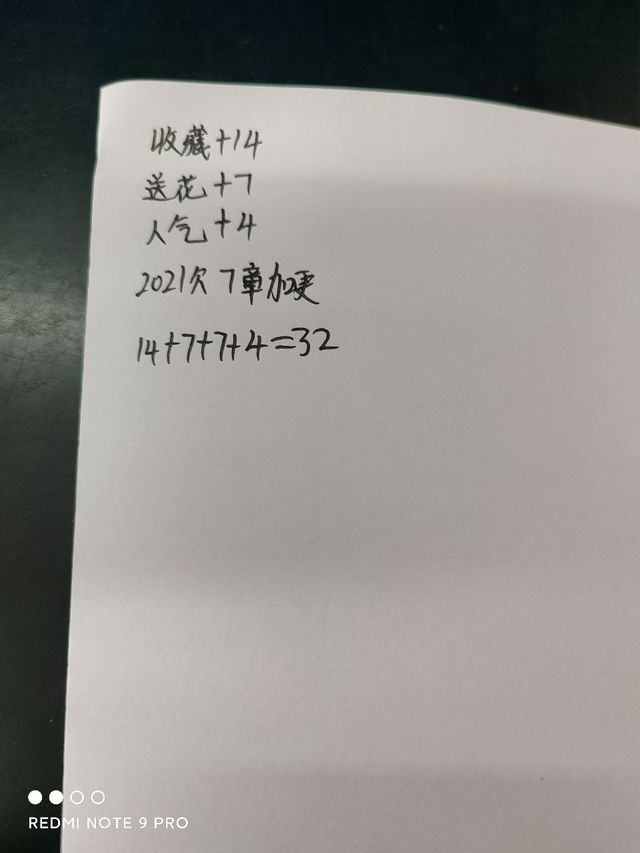 收藏+14
送花+7
人气+4
2021欠7章加更
14+7+7+4=32
REDMI NOTE 9 PRO